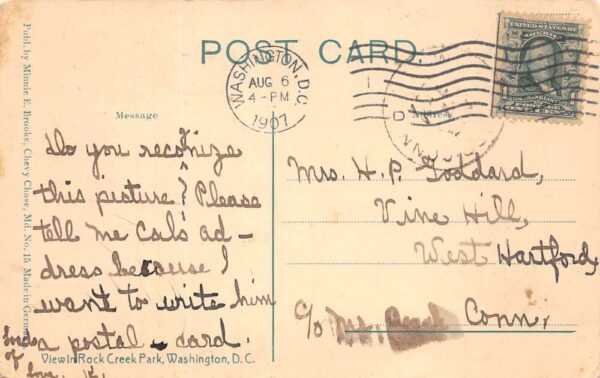 POST CARD.
WASHINGTON, D.C.
AUG 6
4-PM
1907
Message
Do you recognize
this picture? Please
tell me Cal's ad-
dress because I
want to write him
a postal-card.
Mrs. H.P. Goddard,
Vine Hill,
West Hartford,
Conn.
c/o Mrs.
View in Rock Creek Park, Washington, D.C.
Publ. by Minnie E. Brooke, Chevy Chase, Md. No. 15 Made in Germany
of
love.